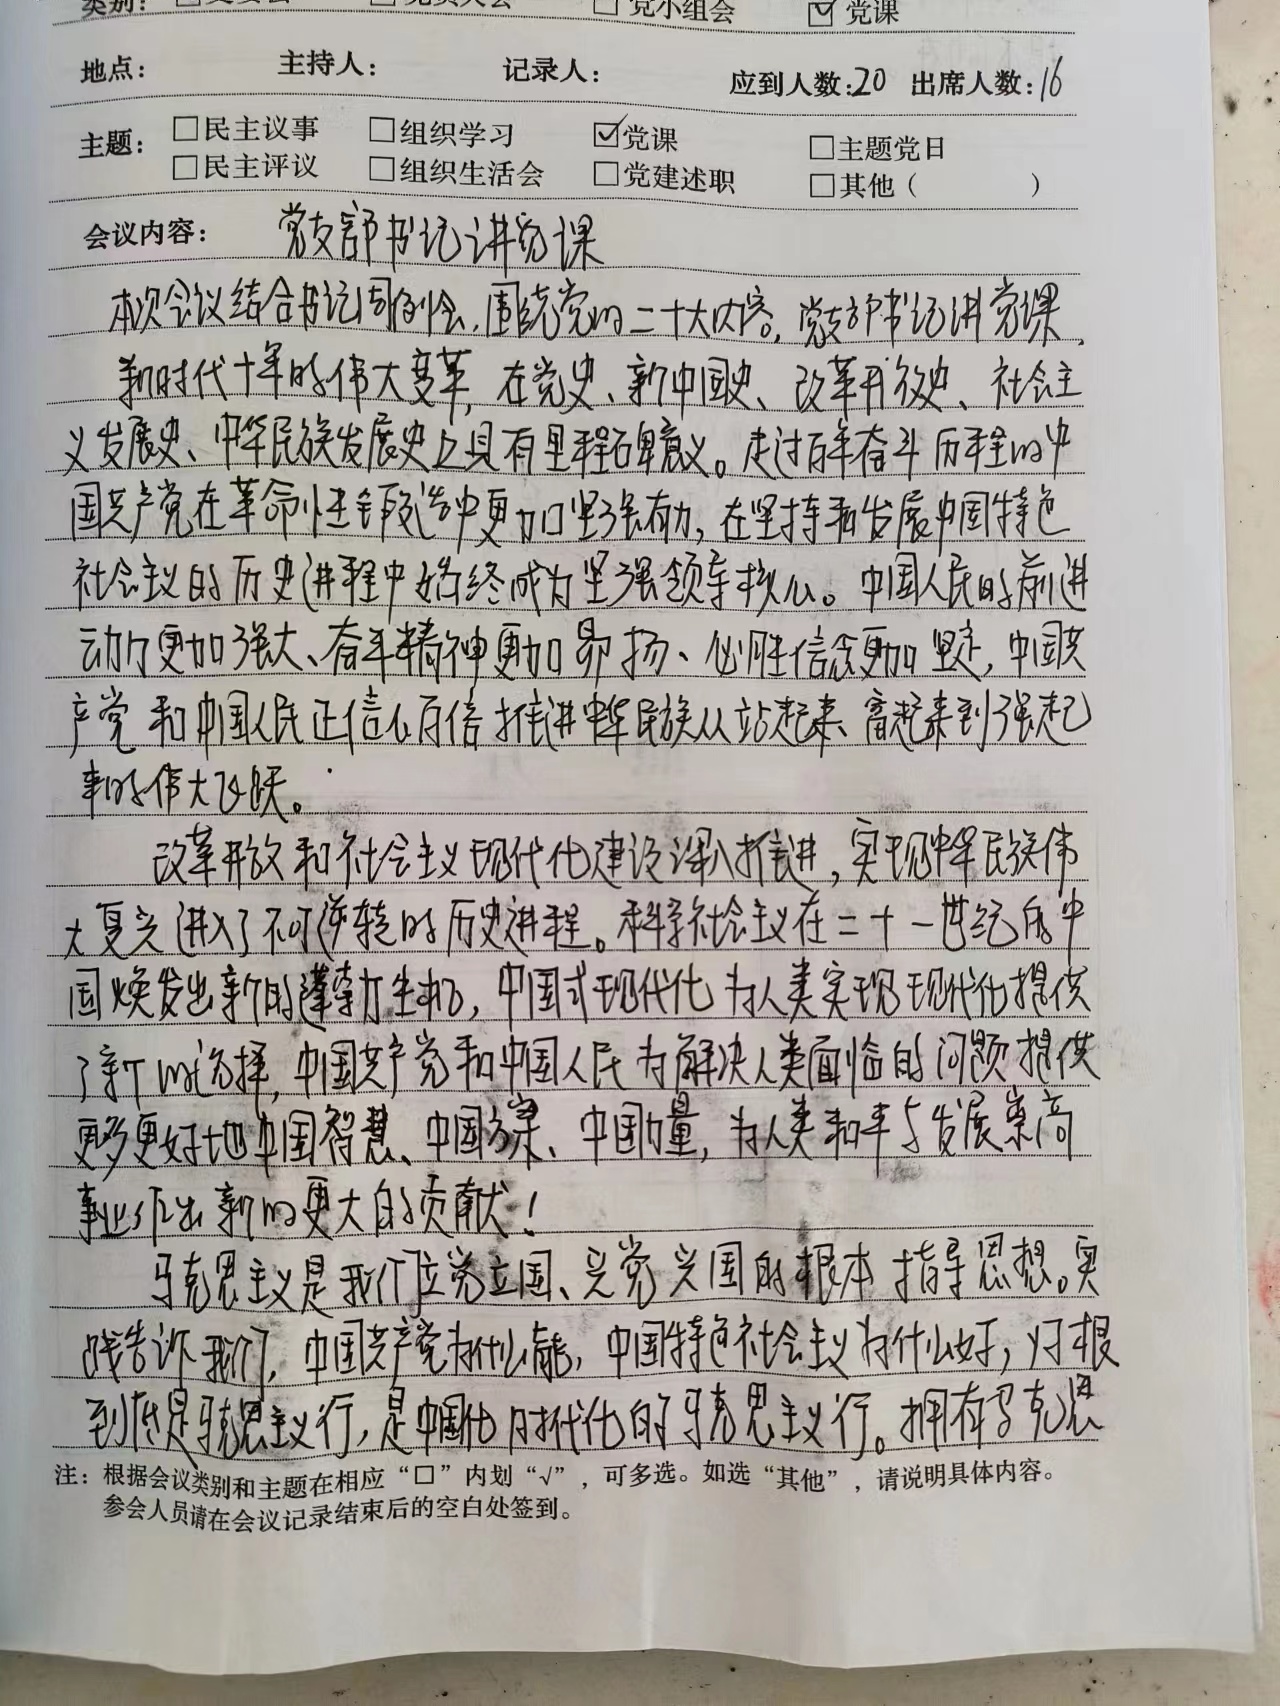 类别： □支委会 □党员大会 □党小组会 ☑党课
地点： 主持人： 记录人： 应到人数：20 出席人数：16
主题： □民主议事 □组织学习 ☑党课 □主题党日
□民主评议 □组织生活会 □党建述职 □其他（ ）
会议内容： 党支部书记讲党课
本次会议结合书记周例会，围绕党的二十大内容，党支部书记讲党课，
新时代十年的伟大变革，在党史、新中国史、改革开放史、社会主
义发展史、中华民族发展史上具有里程碑意义。走过百年奋斗历程的中
国共产党在革命性锻造中更加坚强有力，在坚持和发展中国特色
社会主义的历史进程中始终成为坚强领导核心。中国人民的前进
动力更加强大、奋斗精神更加昂扬、必胜信念更加坚定，中国共
产党和中国人民正信心百倍推进中华民族从站起来、富起来到强起
来的伟大飞跃。
改革开放和社会主义现代化建设深入推进，实现中华民族伟
大复兴进入了不可逆转的历史进程。科学社会主义在二十一世纪的中
国焕发出新的蓬勃生机，中国式现代化为人类实现现代化提供
了新的选择，中国共产党和中国人民为解决人类面临的问题提供
更多更好地中国智慧、中国方案、中国力量，为人类和平与发展崇高
事业作出新的更大的贡献！
马克思主义是我们立党立国、兴党兴国的根本指导思想。实
践告诉我们，中国共产党为什么能，中国特色社会主义为什么好，归根
到底是马克思主义行，是中国化时代化的马克思主义行。拥有马克思
注：根据会议类别和主题在相应“□”内划“√”，可多选。如选“其他”，请说明具体内容。
参会人员请在会议记录结束后的空白处签到。